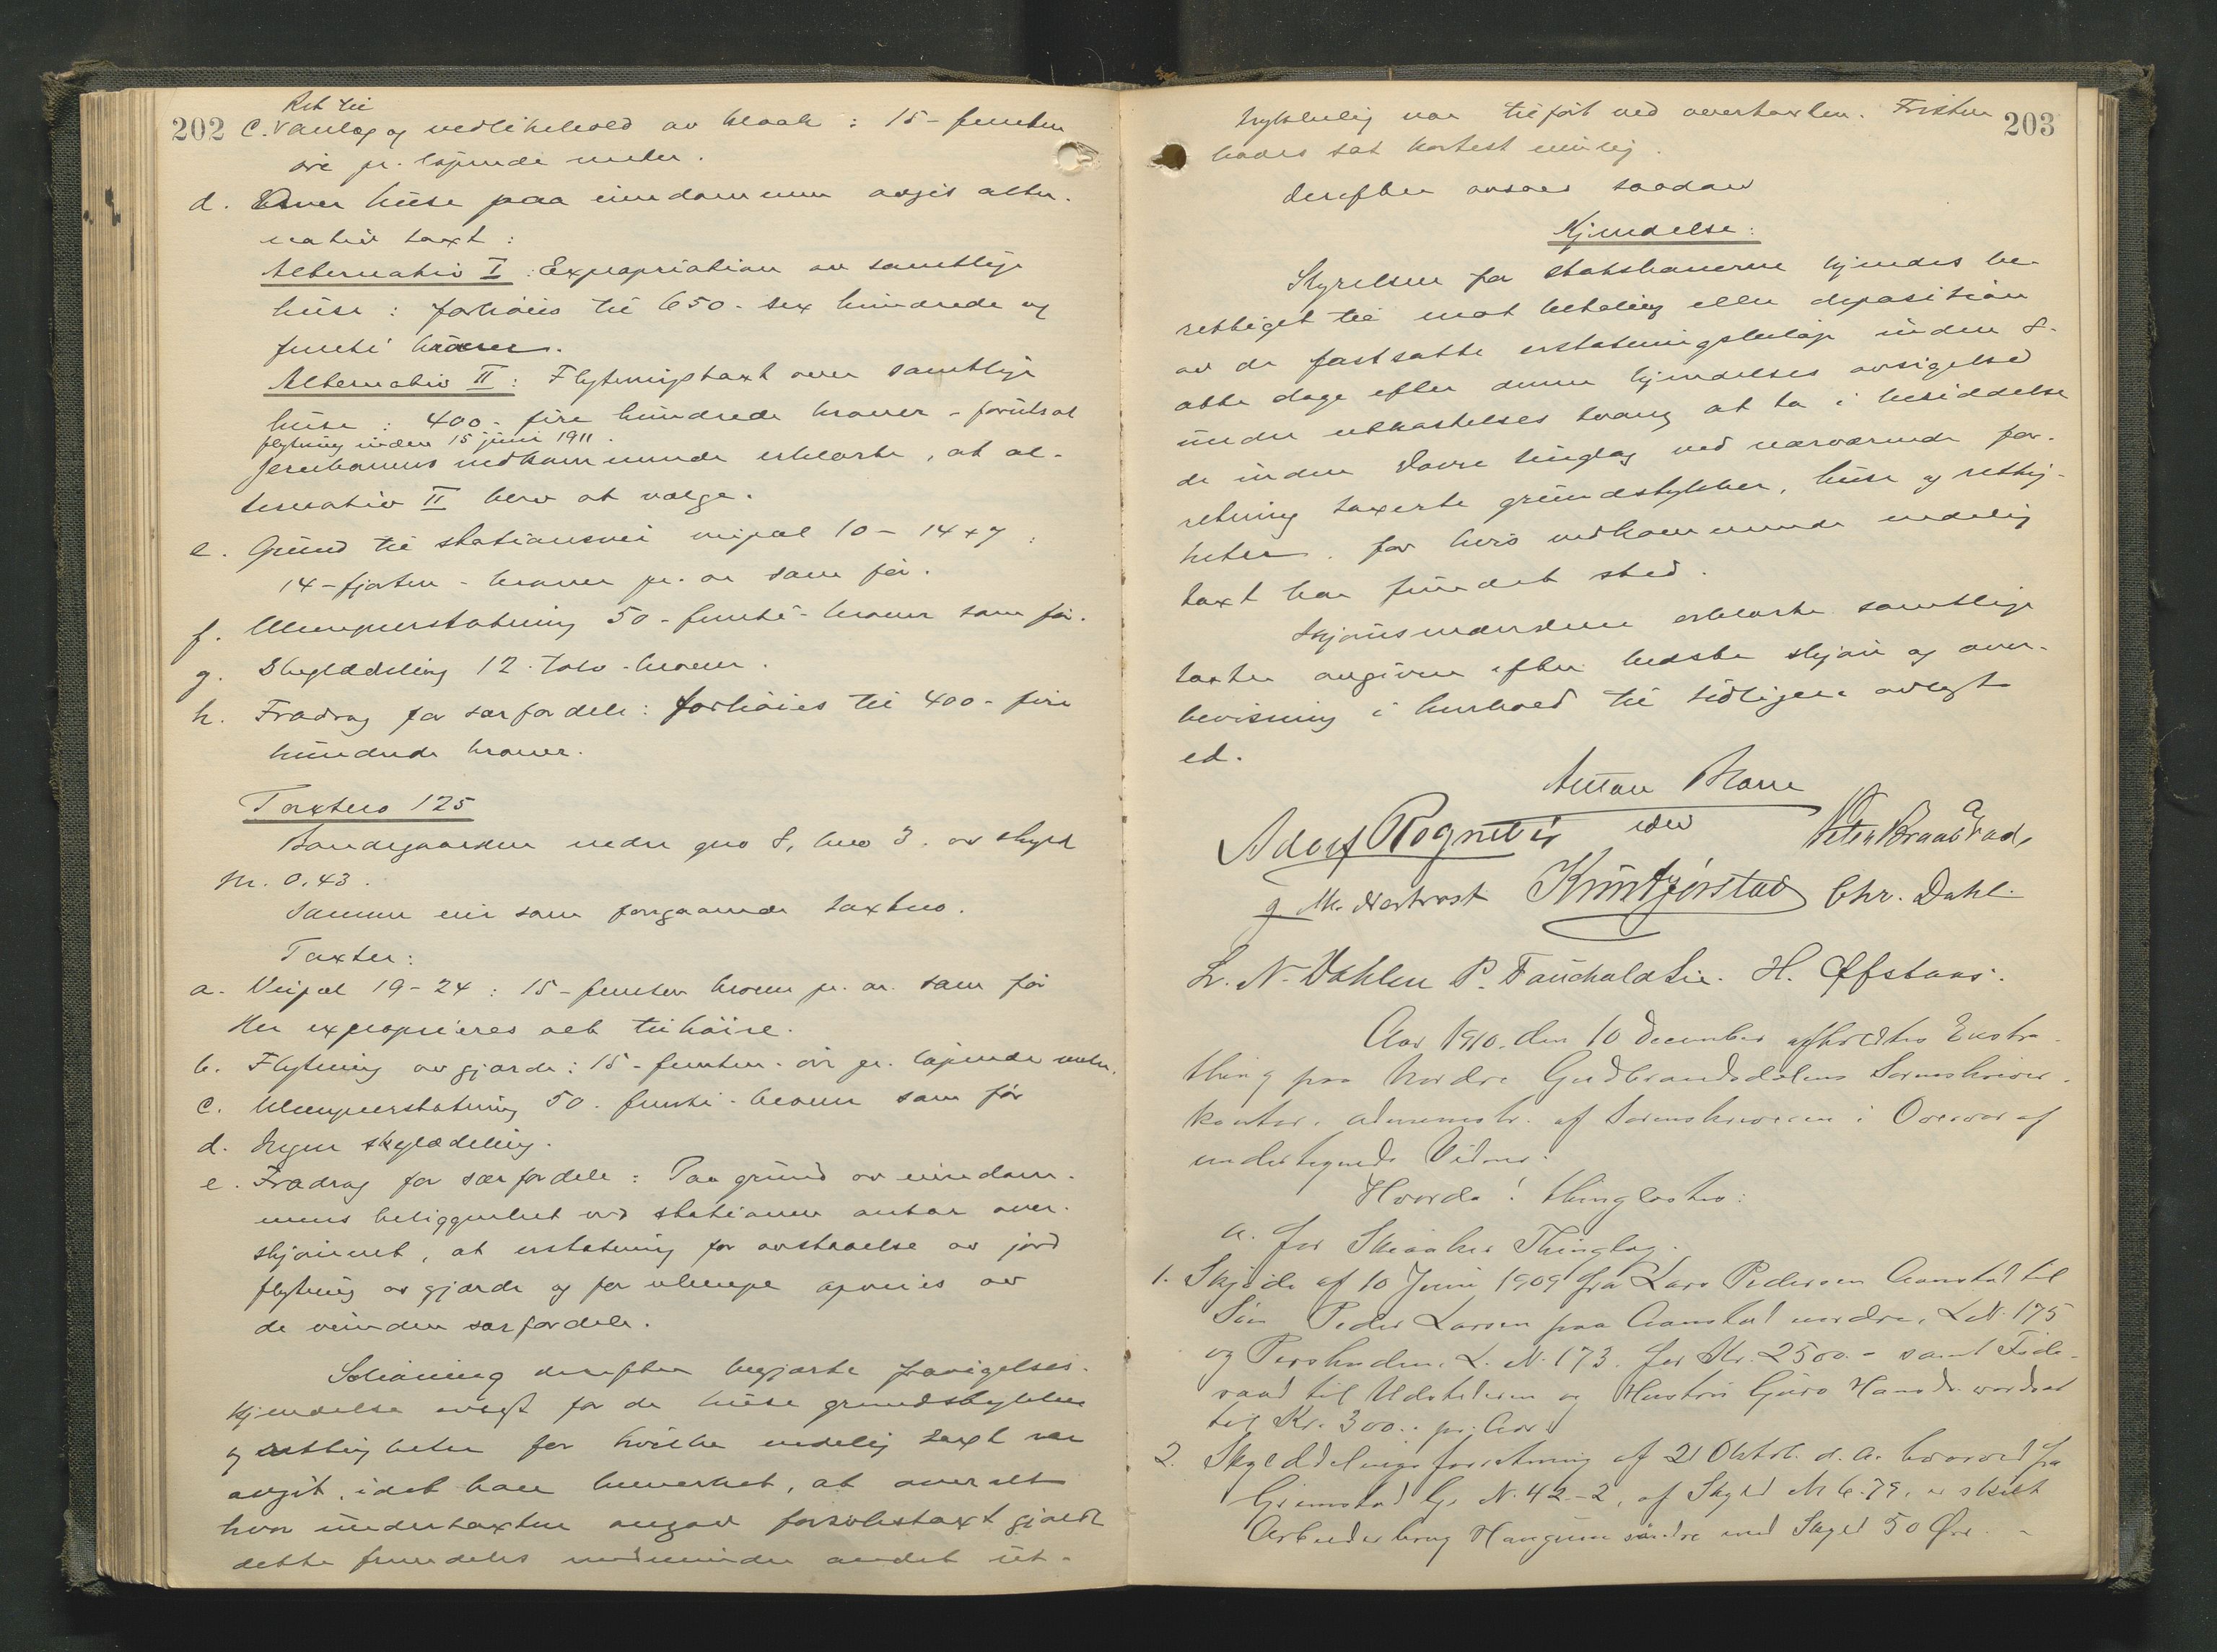 202
Ret til
c. Vanlog og vedlikehold av kloak : 15 - femten
øre pr. løpende meter.
d. Over huse paa eiendommen avgis alter-
nativ taxt :
Alternativ I : Expropriation av samtlige
huse : forhøies til 650 - sex hundrede og
femti kroner.
Alternativ II : Flytningstaxt over samtlige
huse : 400 - fire hundrede kroner - forutsat
flytning inden 15 juni 1911.
Jernbanens vedkommende erklærte, at al-
ternativ II blev at vælge.
e. Grund til stationsvei veipæl 10 - 14 + 7 :
14 - fjorten - kroner pr. ar som før.
f. Ulempeerstatning 50 - femti - kroner som før.
g. Skylddeling 12 - tolv - kroner.
h. Fradrag for særfordele : forhøies til 400 - fire
hundrede kroner.
Taxtno 125
Bandegaarden nedre gno 8, bno 3. av skyld
M. 0.43.
Samme eier som foregaaende taxtno.
Taxter :
a. Veipæl 19 - 24 : 15 - femten kroner pr. ar. som før
Her exproprieres alt tilhøire.
b. Flytning av gjærde : 15 - femten - øre pr. løpende meter.
c. Ulempeerstatning 50 - femti - kroner som før
d. Ingen skylddeling.
e. Fradrag for særfordele : Paa grund av eiendom-
mens beliggenhet ved stationen antar over-
skjønnet, at erstatning for avstaaelse av jord
flytning av gjærde og for ulempe opveies av
de vundne særfordele.
derefter begjærte fravigelses-
kjendelse avsagt for de huse grundstykker
og rettigheter for hvilke endelig taxt var
avgit, idet han bemerket, at overalt
hvor undertaxten angav forsøkstaxt gjaldt
dette fremdeles medmindre andet ut-
203
trykkelig var tilført ved overtaxten. Fristen
bades sat kortest mulig.
Derefter avsaes saadan
Kjendelse :
Styrelsen for Statsbanerne kjendes be-
rettiget til mot betaling eller deposition
av de fastsatte erstatningsbeløp inden 8-
otte dage efter denne kjendelses avsigelse
under utkastelses tvang at ta i besiddelse
de inden Dovre tinglag ved nærværende for-
retning taxerte grundstykker, huse og rettig-
heter, for hvis vedkommende endelig
taxt har fundet sted.
Skjønsmændene erklærte samtlige
taxter avgivne efter bedste skjøn og over-
bevisning i henhold til tidligere avlagt
ed.
Anton
Adolf Rognli
Peter Braastad,
Chr. Dahl
L. N. Dahlen P. Fauchald Lie. H. Øfstaas.
Aar 1910, den 10 December afholdtes Extra-
thing paa Nordre Gudbrandsdalens Sorenskriver-
kontor, administr. af Sorenskriveren i Overvær af
undertegnede Vidner.
Hvorda! thinglæstes :
a. for Skiaker Thinglag.
1. Skjøde af 10 Juni 1909 fra Lars Pedersen Aamstad til
Søn Peder Larsen paa Aamstad nordre, L.N. 175
og L. N. 173. for Kr. 2500.- samt Føde-
raad til Udstederen og Hustru Guro Hansdr. værdsat
til Kr. 300.- pr. Aar.
2. Skylddelingsforretning af 21 Oktob. d. A. hvorved fra
Grimstad G. N. 42 - 2, af Skyld M 6.79, er skilt
Arbeiderbrug Haugum søndre med Skyld 50 Øre. -